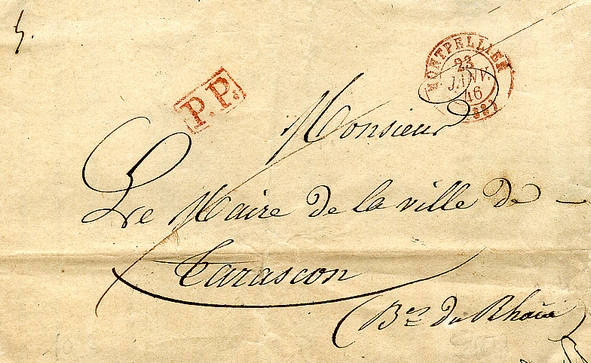 MONTPELLIER
23
JANV.
46
P.P.
Monsieur
Le Maire de la ville de
Tarascon
(Bes du Rhône)